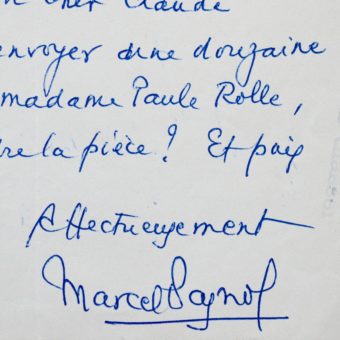 cher Claude
envoyer une douzaine
madame Paule Rolle,
la pièce? Et puis
Affectueusement
Marcel Pagnol